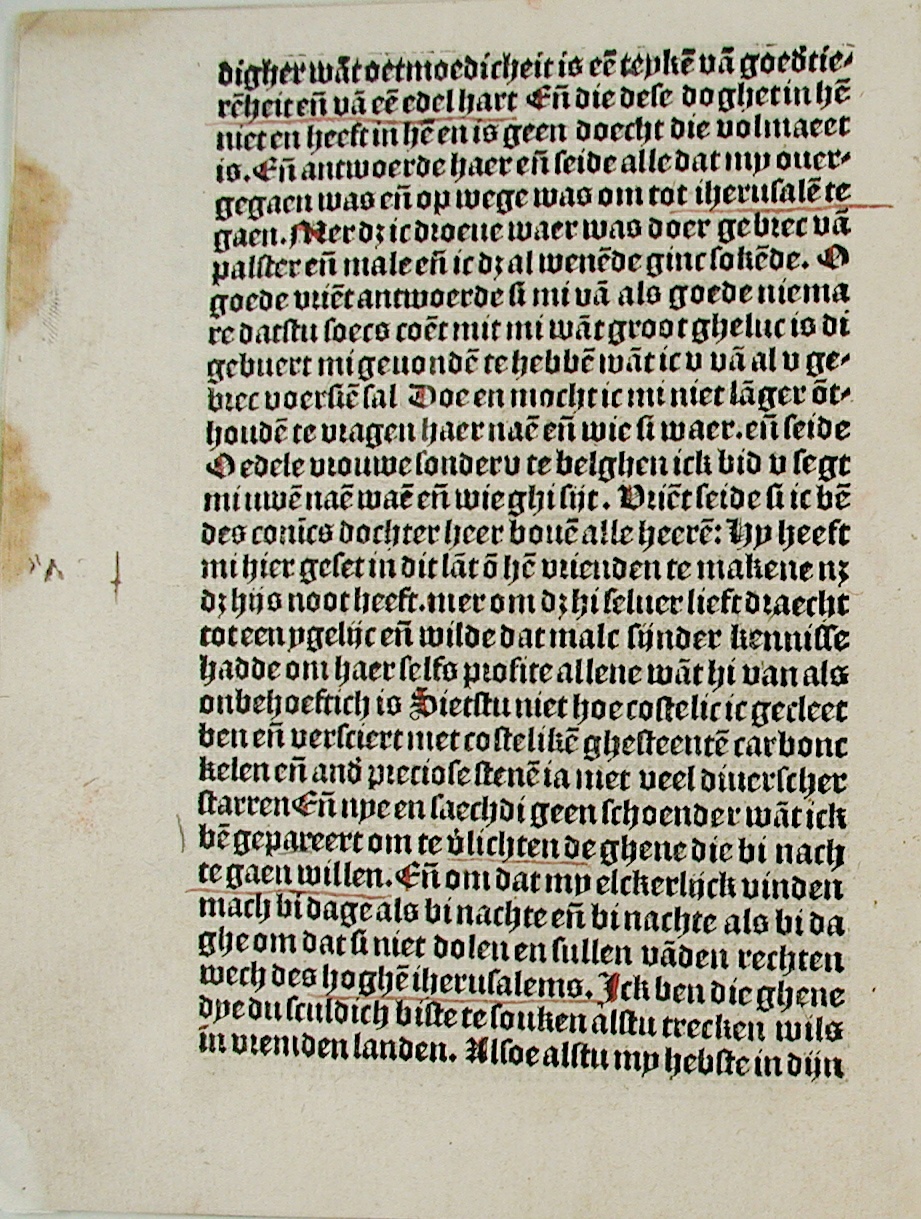 digher wāt oetmoedicheit is eē teykē vā goeďtie⸗
rēheit eñ vā eē edel hart Eñ die dese doghet in hē
niet en heeft in hē en is geen doecht die volmaect
is. Eñ antwoerde haer eñ seide alle dat my ouer⸗
gegaen was eñ op wege was om tot iherusalē te
gaen. Mer dʒ ic droeue waer was doer gebrec vā
palster eñ male eñ ic dʒ al wenēde ginc sokēde. O
goede vriēt antwoerde si mi vā als goede niema
re datstu soecs coēt mit mi wāt groot gheluc is di
gebuert mi geuondē te hebbē wāt ic v vā al v ge⸗
brec voersiē sal Doe en mocht ic mi niet lāger ōt⸗
houdē te vragen haer naē eñ wie si waer. eñ seide
O edele vrouwe sonder v te belghen ick bid v segt
mi uwē naē waē eñ wie ghi sijt. Vriēt seide si ic bē
des conīcs dochter heer bouē alle heerē: Hy heeft
mi hier geset in dit lāt ō hē vrienden te makene nʒ
dʒ hijs noot heeft. mer om dʒ hi seluer lief draecht
tot een ygelijc eñ wilde dat malc sijnder kennisse
hadde om haer selfs profite allene wāt hi van als
onbehoeftich is Sietstu niet hoe costelic ic gecleet
ben eñ versciert met costelikē ghesteentē carbonc
kelen eñ anď preciose stenē ia met veel diuerscher
starren Eñ nye en saechdi geen schoender wāt ick
bē gepareert om te v̉lichten de ghene die bi nach
te gaen willen. Eñ om dat my elckerlijck vinden
mach bi dage als bi nachte eñ bi nachte als bi da
ghe om dat si niet dolen en sullen vāden rechten
wech des hoghē iherusalems. Ick ben die ghene
dye du sculdich biste te souken alstu trecken wils
in vremden landen. Alsoe alstu my hebste in dijn